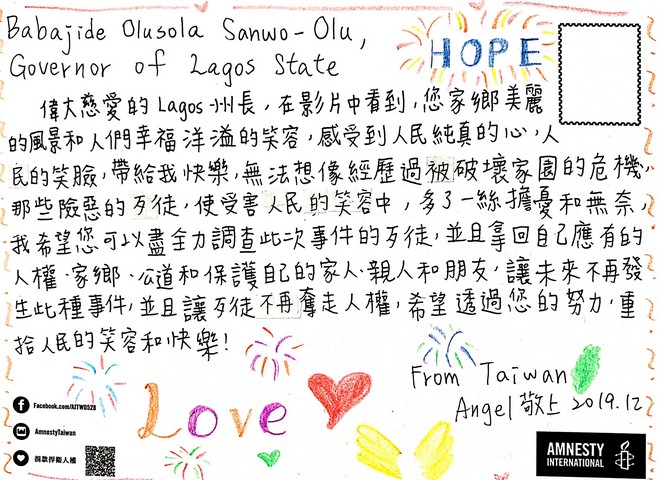 Babajide Olusola Sanwo-Olu,
Governor of Lagos State
HOPE
偉大慈愛的Lagos州長，在影片中看到，您家鄉美麗
的風景和人們幸福洋溢的笑容，感受到人民純真的心，人
民的笑臉，帶給我快樂，無法想像經歷過被破壞家園的危機，
那些險惡的歹徒，使受害人民的笑容中，多了一絲擔憂和無奈，
我希望您可以盡全力調查此次事件的歹徒，並且拿回自己應有的
人權、家鄉、公道和保護自己的家人、親人和朋友，讓未來不再發
生此種事件，並且讓歹徒不再奪走人權，希望透過您的努力，重
拾人民的笑容和快樂！
From Taiwan
Angel 敬上 2019.12
Love
Facebook.com/AITW0528
AmnestyTaiwan
捐款捍衛人權
AMNESTY
INTERNATIONAL